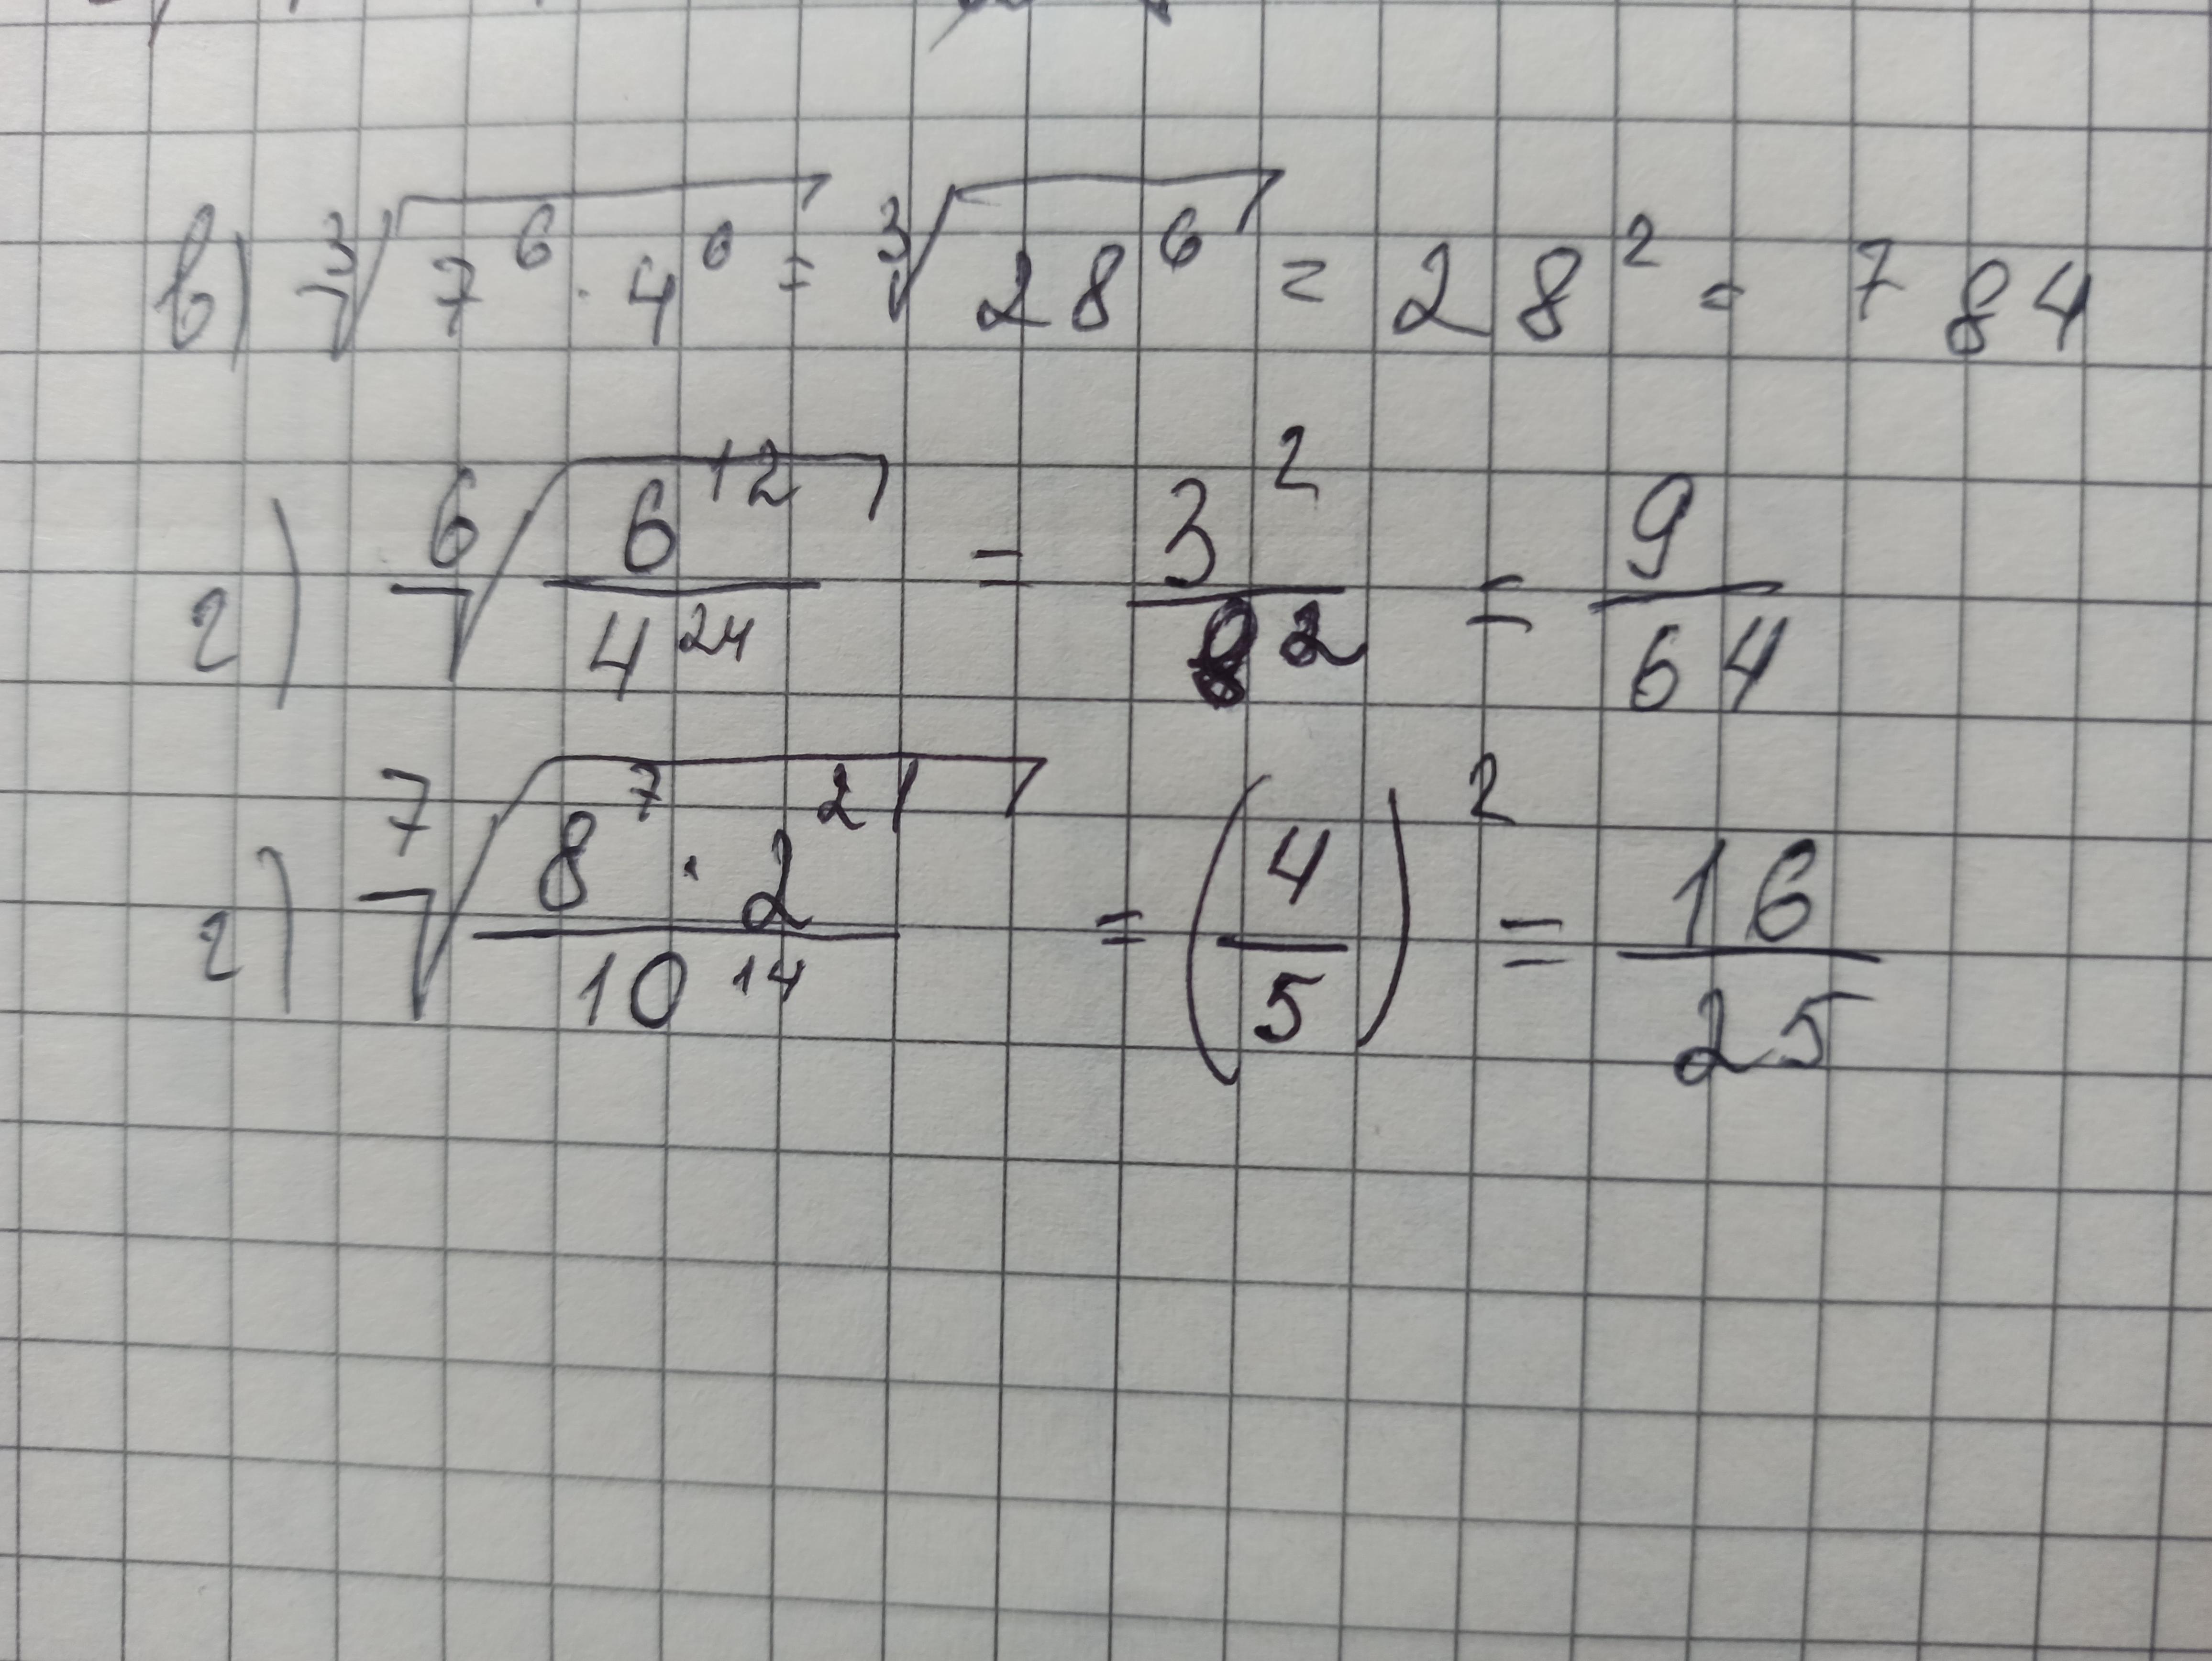 в) ∛(7⁶ · 4⁶) = ∛(28⁶) = 28² = 784
г) ⁶√(6¹²/4²⁴) = 3²/8² = 9/64
г) ⁷√((8⁷ · 2²¹)/10¹⁴) = (4/5)² = 16/25